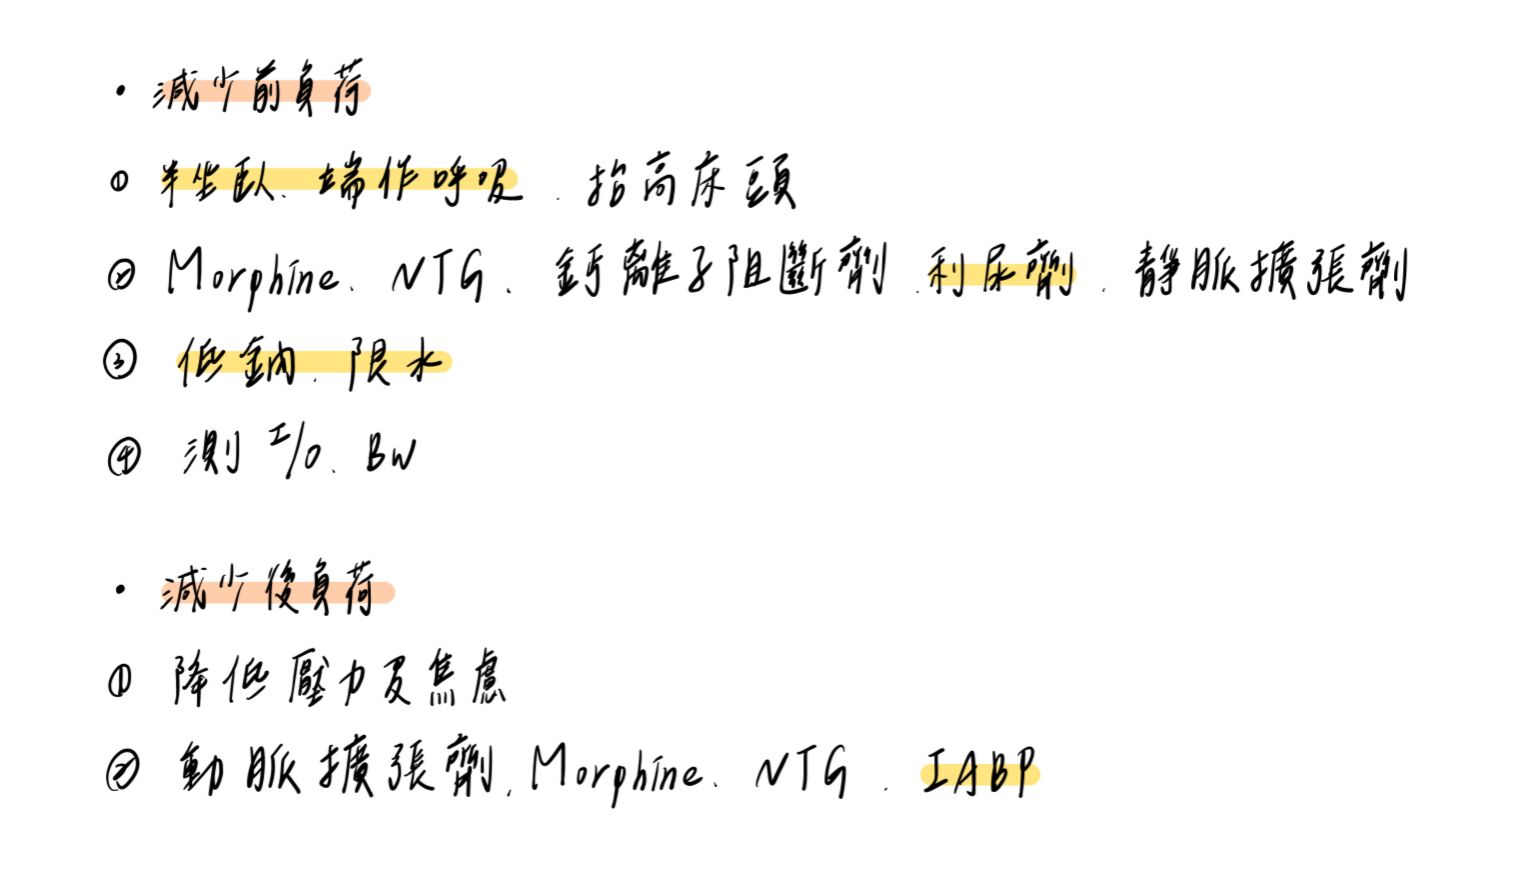 • 減少前負荷
① 半坐臥、端作呼吸、抬高床頭
② Morphine、NTG、鈣離子阻斷劑、利尿劑、靜脈擴張劑
③ 低鈉、限水
④ 測 I/O、BW
• 減少後負荷
① 降低壓力及焦慮
② 動脈擴張劑、Morphine、NTG、IABP